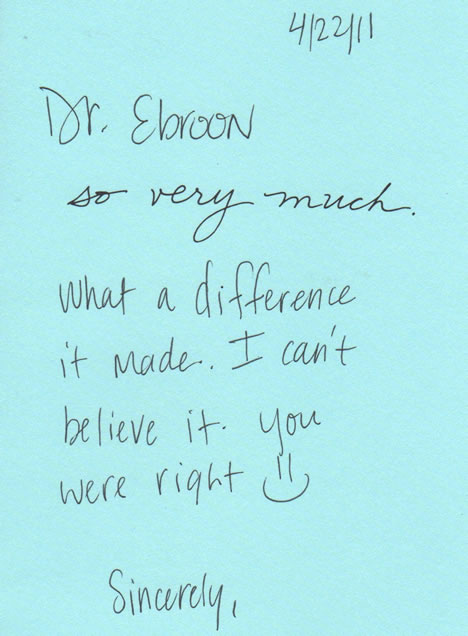 4/22/11
Dr. Ebroon
so very much.
What a difference
it made. I can't
believe it. You
were right
Sincerely,